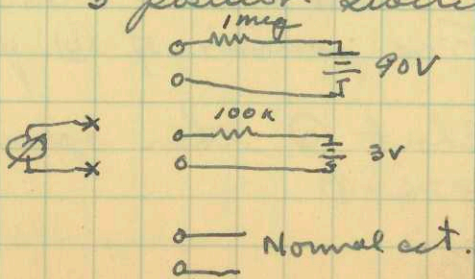 3 position
1 meg
90V
100K
3V
Normal cct.